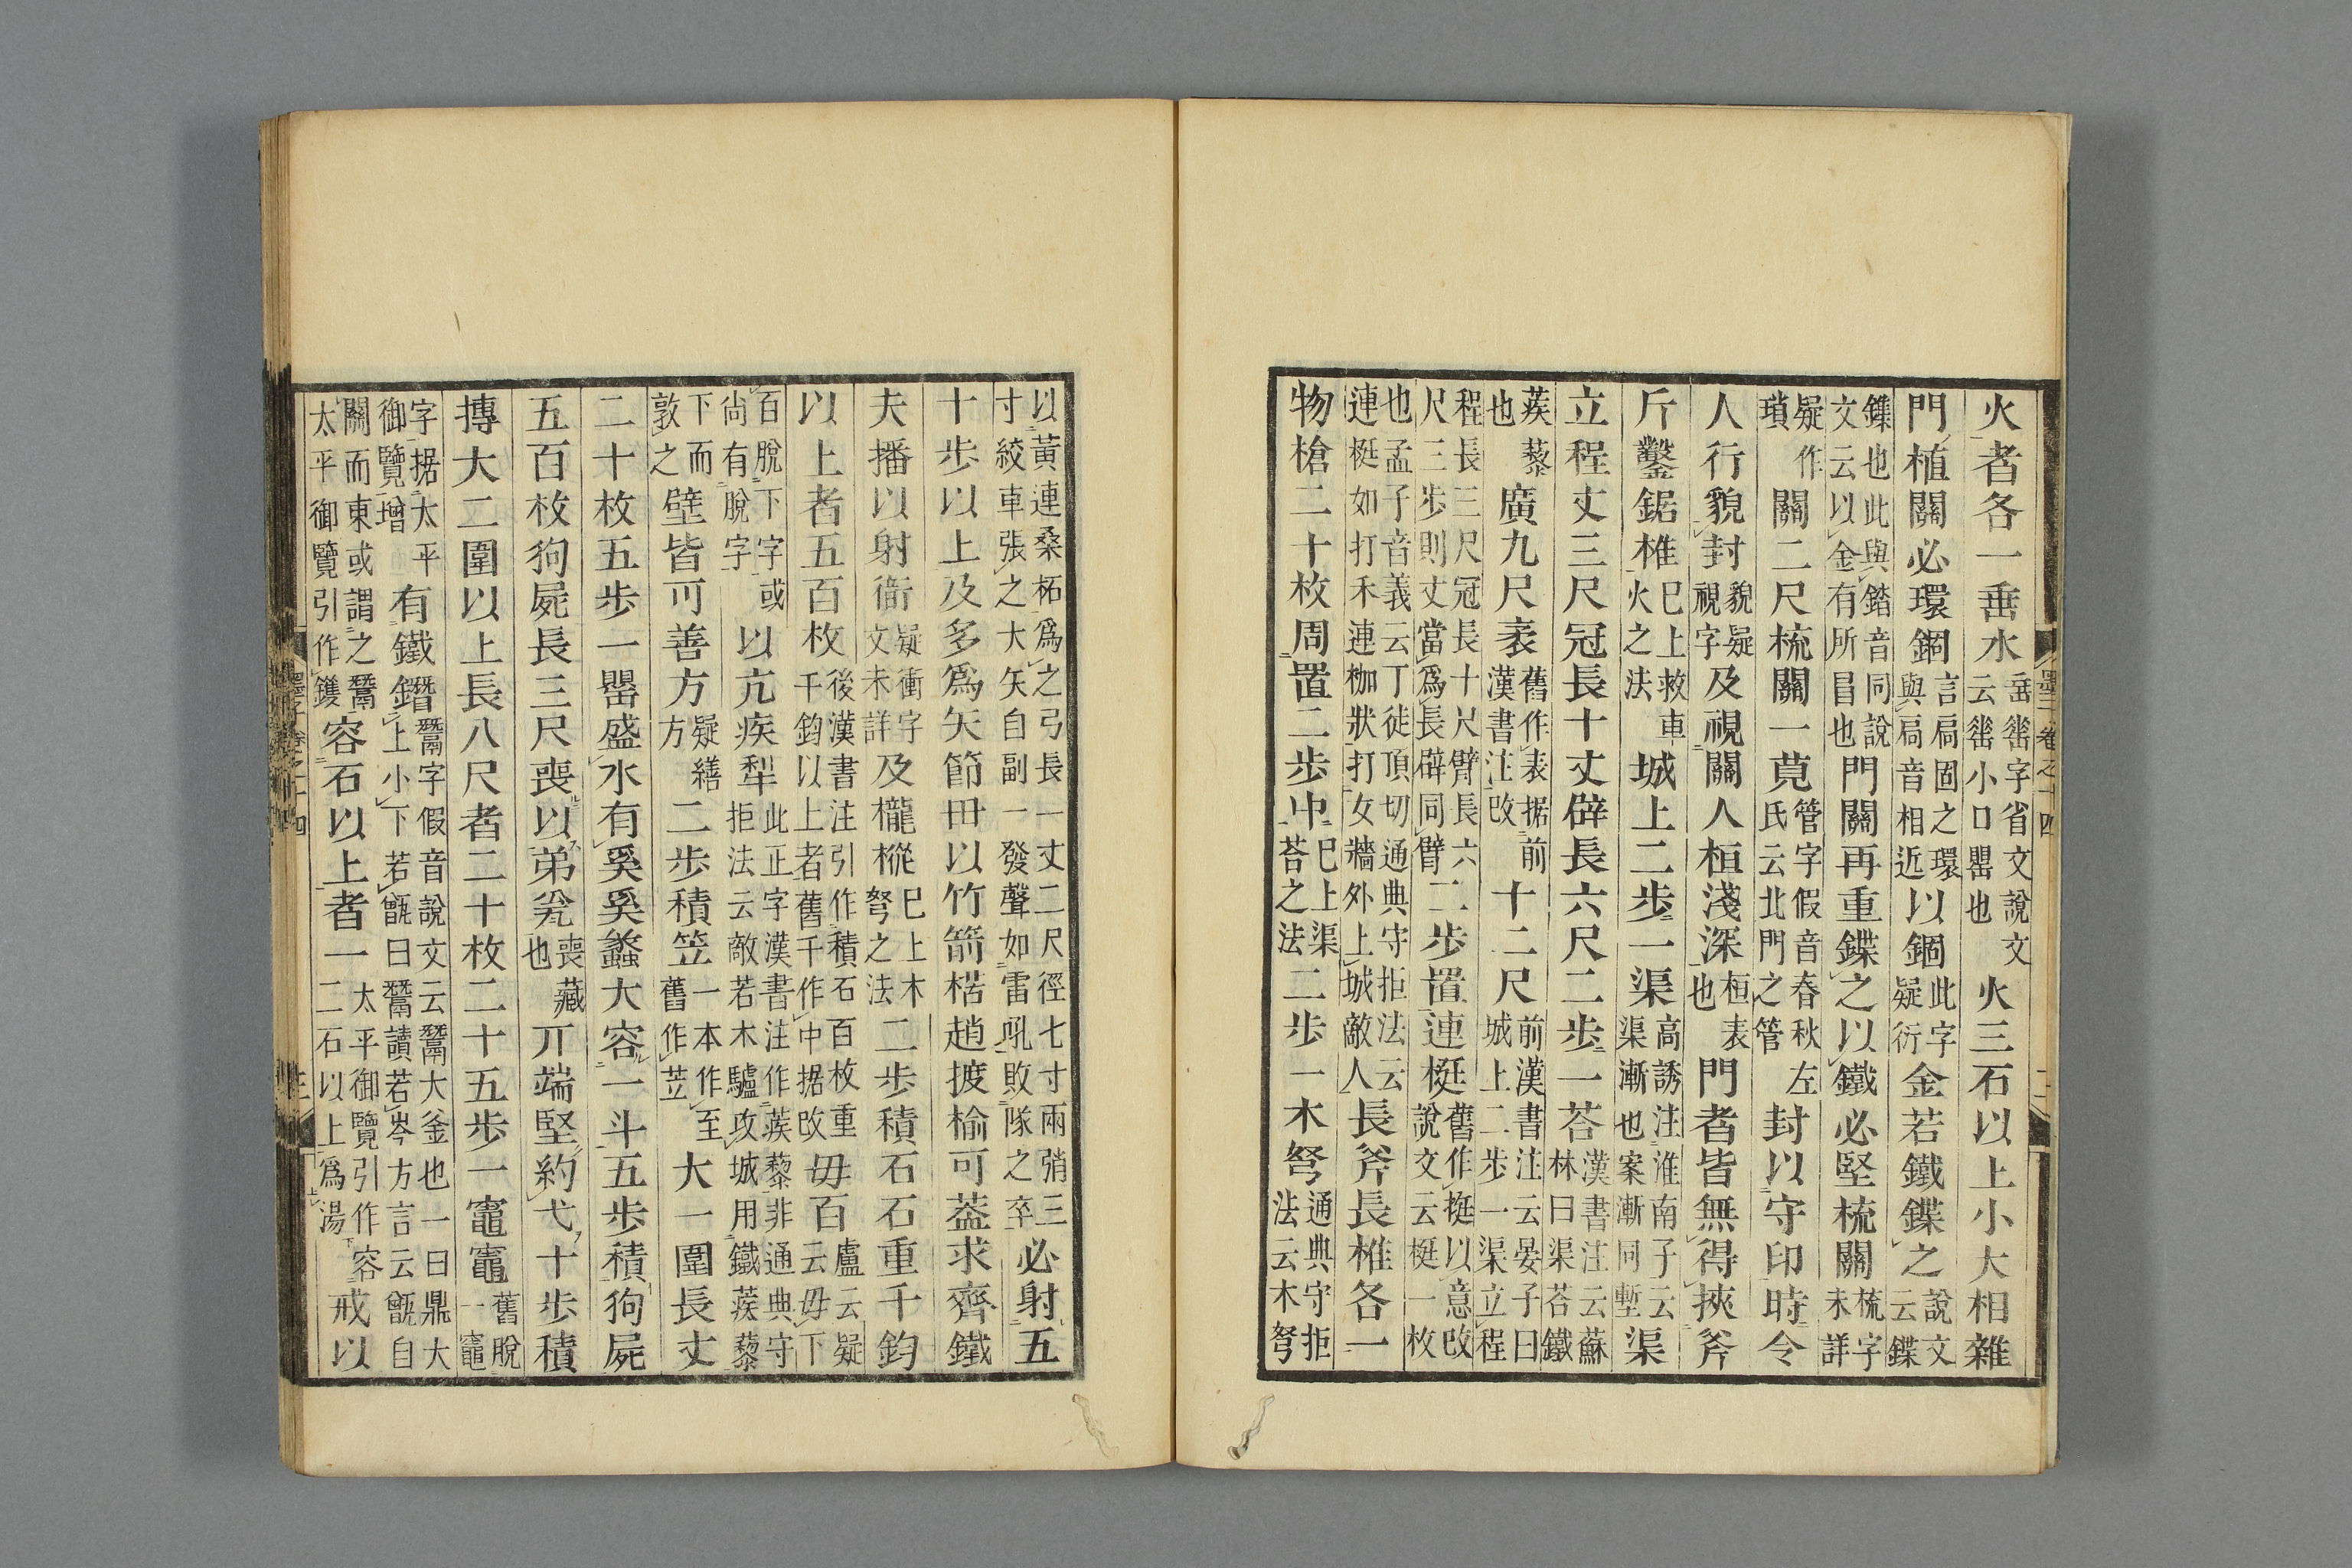 火者各一垂水垂字省文說文云小口罌也火三石以上小大相雜
門植關必環錮言扃固之環與扃音相近以錮此字疑衍金若鐵鍱之說文云鍱
鏶也此與錔音同說文云以金有所冒也門關再重鍱之以鐵必堅梳關梳字未詳
疑作瑣關二尺梳關一莧管字假音春秋左氏云北門之管封以守印時令
人行貌封貌疑視字及視關人桓淺深桓表也門者皆無得挾斧
斤鑿鋸椎巳上救車火之法城上二步一渠高誘注淮南子云渠漸也案漸同塹渠
立程丈三尺冠長十丈辟長六尺二步一荅漢書注云蘇林曰渠荅鐵
蒺藜也廣九尺袤舊作表据前漢書注改十二尺前漢書注云晏子曰城上二步一渠立程
程長三尺冠長十尺臂長六尺三步則丈當爲長辟同臂二步置連梃舊作挺以意改說文云梃一枚
也孟子音義云丁徒頂切通典守拒法云連梃如打禾連枷狀打女牆外上城敵人長斧長椎各一
物槍二十枚周置二步中巳上渠荅之法二步一木弩通典守拒法云木弩
墨子卷之十四 二
以黃連桑柘爲之弓長一丈二尺徑七寸兩弰三寸絞車張之大矢自副一發聲如雷吼敗隊之卒必射五
十步以上及多爲矢節毌以竹箭楛趙榆可蓋求齊鐵
夫播以射疑衝字文未詳及櫳樅巳上木弩之法二步積石石重千鈞
以上者五百枚後漢書注引作積石百枚重千鈞以上者舊千作中据改毋百盧云疑云毋下
百脫下字或尚有脫字以亢疾犁此正字漢書注作蒺藜非通典守拒法云敵若木驢攻城用鐵蒺藜
下而敦之壁皆可善方疑繕方二步積笠一本作至舊作苙大一圍長丈
二十枚五步一罌盛水有奚奚蠡大容一斗五步積狗屍
五百枚狗屍長三尺喪以弟瓮喪藏也丌端堅約弋十步積
摶大二圍以上長八尺者二十枚二十五步一竈竈舊脫一竈
字据太平御覽增有鐵鐕鬵字假音說文云鬵大釜也一曰鼎大上小下若甑曰鬵讀若岑方言云甑自
關而東或謂之鬵太平御覽引作鑊容石以上者一太平御覽引作容二石以上爲湯戒以
墨子卷之十四 三